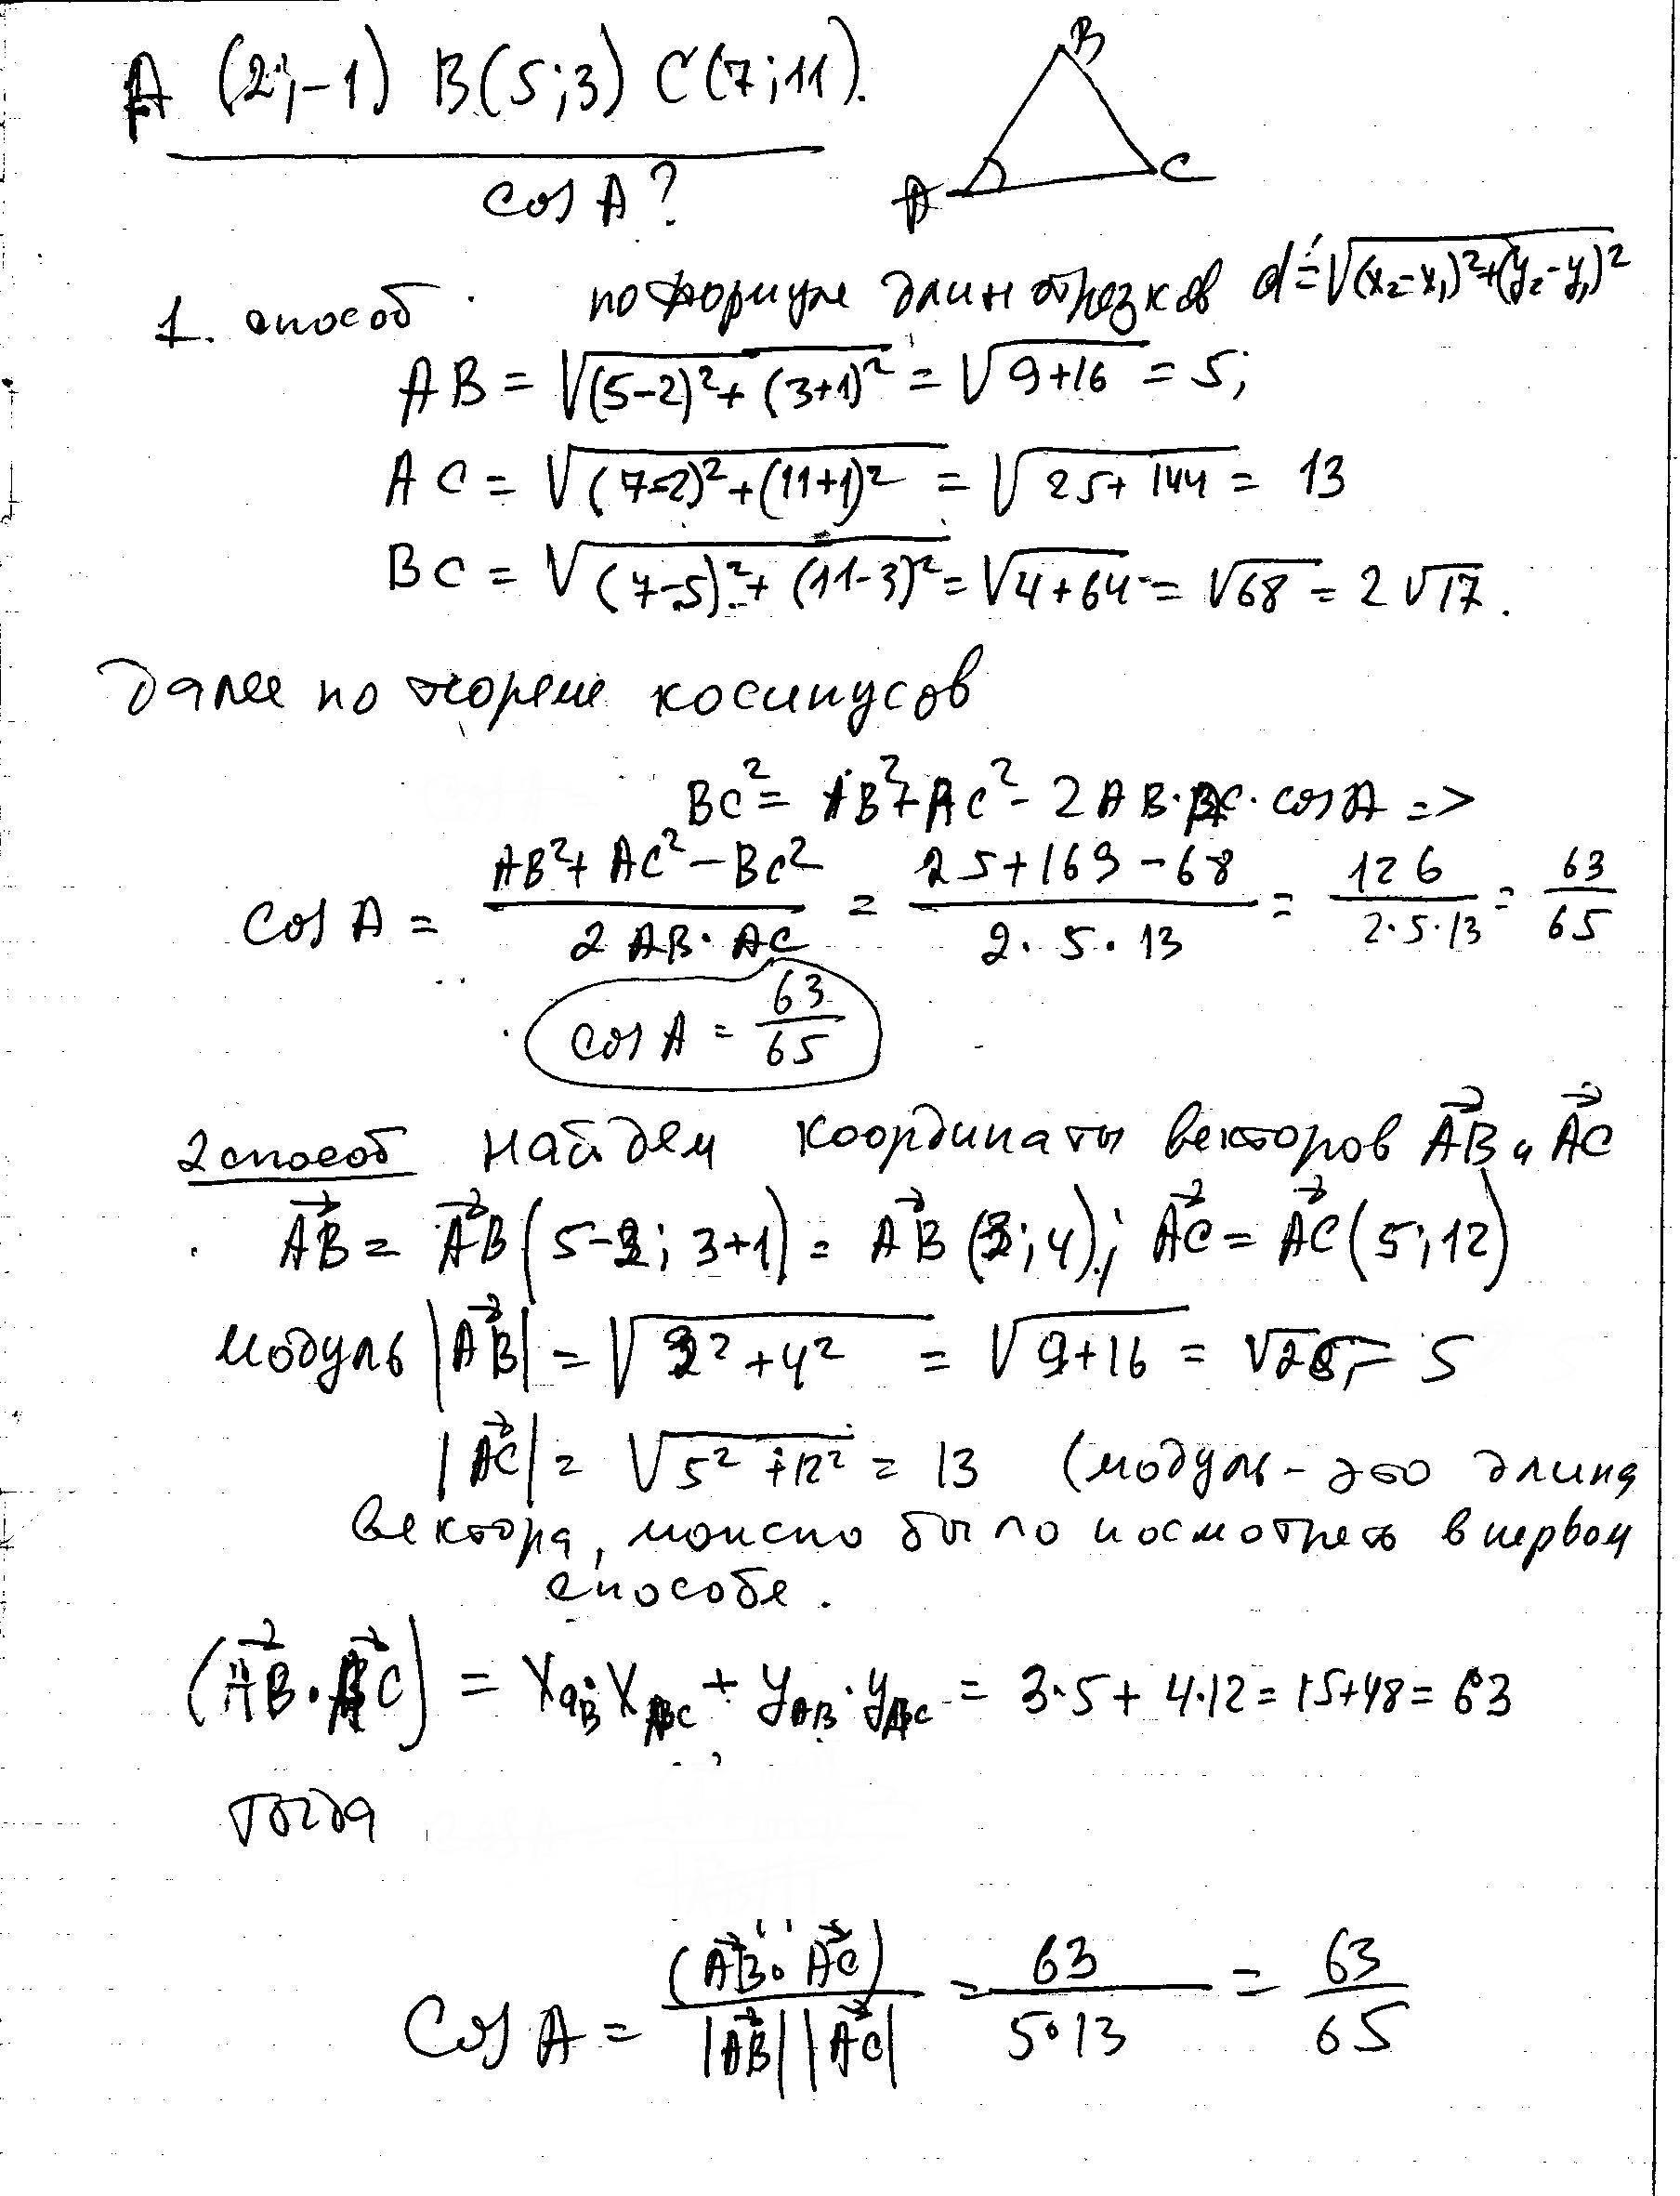 A (2;-1) B(5;3) C(7;11).
cos A?
B
A
C
1. способ по формуле длин отрезков d=√(x₂-x₁)²+(y₂-y₁)²
AB = √(5-2)²+(3+1)² = √9+16 = 5;
AC = √(7-2)²+(11+1)² = √25+144 = 13
BC = √(7-5)²+(11-3)² = √4+64 = √68 = 2√17.
Далее по теореме косинусов
BC² = AB²+AC²-2AB·AC·cosA =>
cos A = (AB²+AC²-BC²)/(2AB·AC) = (25+169-68)/(2·5·13) = 126/(2·5·13) = 63/65
cos A = 63/65
2 способ найдем координаты векторов A⃗B и A⃗C
A⃗B = A⃗B(5-2; 3+1) = A⃗B(3;4); A⃗C = A⃗C(5;12)
модуль |A⃗B| = √3²+4² = √9+16 = √25 = 5
|A⃗C| = √5²+12² = 13 (модуль - это длина
вектора, можно было посмотреть в первом
способе.
(A⃗B·A⃗C) = x_AB·x_AC + y_AB·y_AC = 3·5+4·12=15+48=63
тогда
Cos A = (A⃗B·A⃗C)/(|A⃗B||A⃗C|) = 63/(5·13) = 63/65